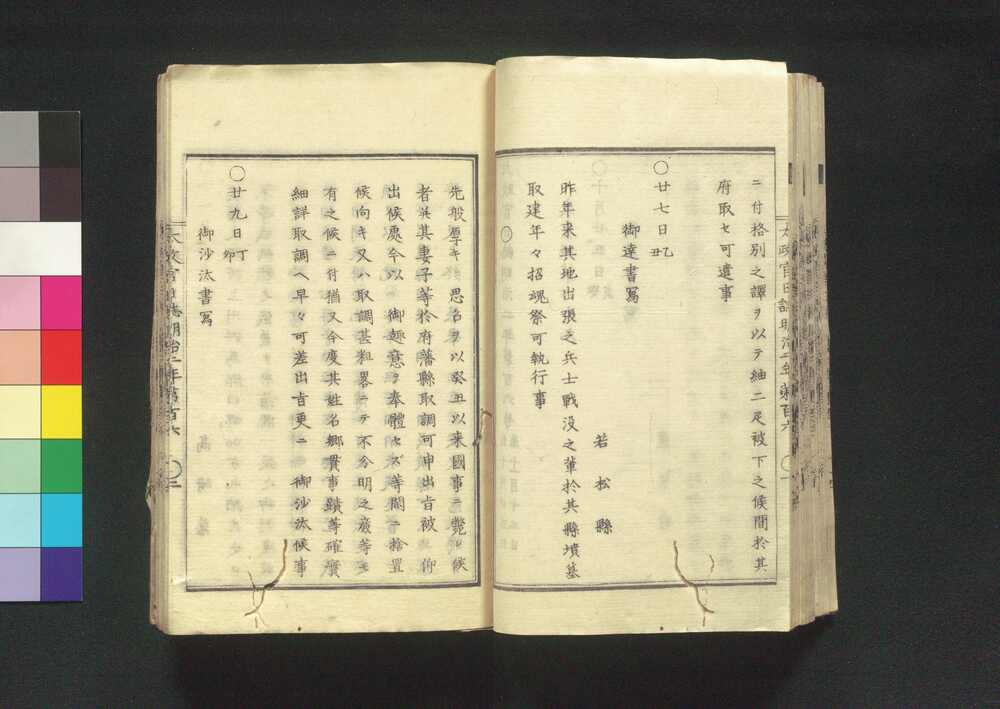 ニ付格別之譯ヲ以テ紬二疋被下之候間於其
府取セ可遣事
〇廿七日乙丑
御達書寫
若松縣
昨年来其地出張之兵士戦没之輩於其縣墳墓
取建年々招魂祭可執行事
太政官日誌明治二年第百六
先般厚キ 思召ヲ以癸丑以来國事ニ斃レ候
者并其妻子等於府藩縣取調可申出旨被 仰
出候處今以 御趣意ヲ奉體セズ等閑ニ捨置
候向キ又ハ取調甚粗畧ニテ不分明之廉等モ
有之候ニ付猶又今度其姓名郷貫事蹟等確實
細詳取調ヘ早々可差出旨更ニ 御沙汰候事
〇廿九日丁卯
御沙汰書寫
太政官日誌明治二年第百六 〇二